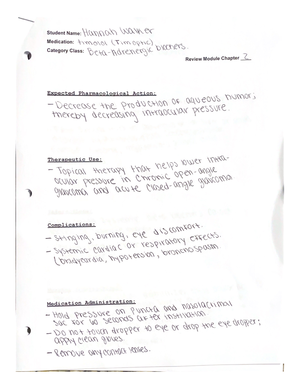 Student Name: Hannah Walker
Medication: timolol (Timoptic)
Category Class: Beta-Adrenergic blockers
Review Module Chapter
Expected Pharmacological Action:
- Decrease the production of aqueous humor;
thereby decreasing intraocular pressure.
Therapeutic Use:
- Topical therapy that helps lower intra-
ocular pressure in chronic open-angle
glaucoma and acute closed-angle glaucoma
Complications:
- Stinging, burning, eye discomfort.
- Systemic cardiac or respiratory effects.
(bradycardia, hypotension, bronchospasm
Medication Administration:
- Hold pressure on puncta and nasolacrimal
sac for 60 seconds after instillation
- Do not touch dropper to eye or drop the eye dropper;
apply clean gloves
- Remove any contact lenses.